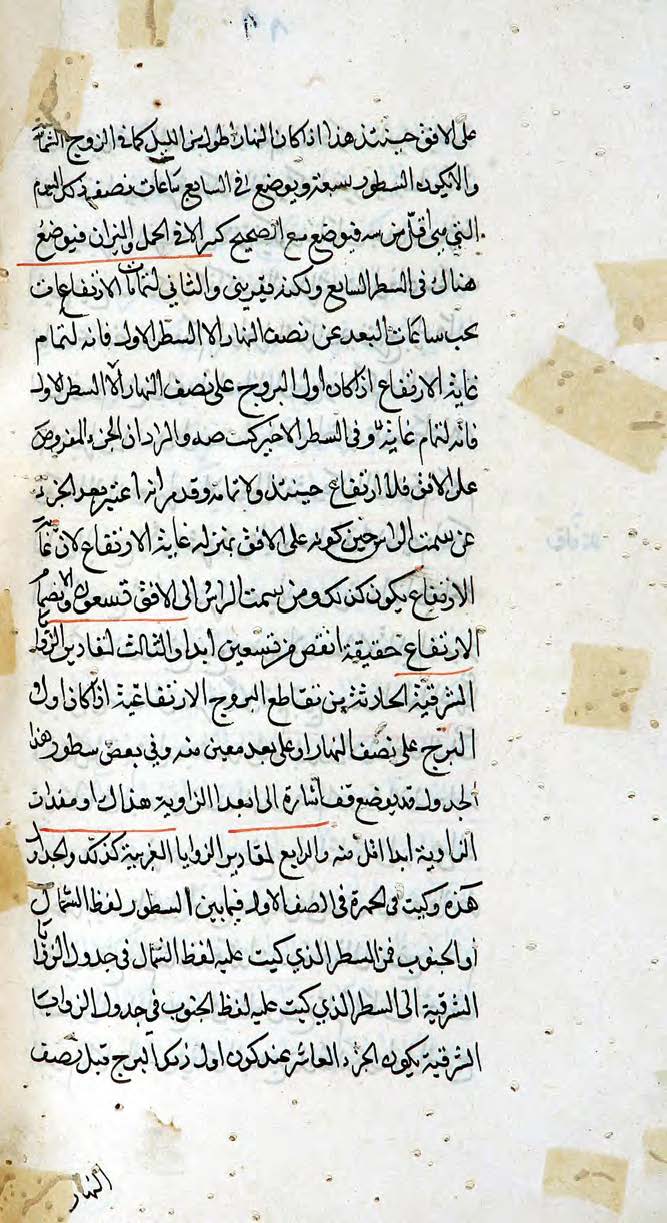 على الافق حينئذ هذا اذا كان النهار اطول من الليل كما فى البروج الشمالية
والا يكون السطور سبعة ويوضع فى السابع ساعات نصف ذلك اليوم
التي هى اقل من سه فيوضع مع الصحيح كسر الا فى الحمل والميزان فيوضع
هناك فى السطر السابع ولكنه تقريبى والثاني لتمامات الارتفاعات
بحسب ساعات البعد عن نصف النهار الا السطر الاول فانه لتمام
غاية الارتفاع اذا كان اول البروج على نصف النهار الا السطر الاول
فانه لتمام غايته وفى السطر الاخير كتب صه والمراد ان الجزء المفروض
على الافق فلا ارتفاع حينئذ ولا تمامه وقد مر انه اعتبر بعد الجزء
عن سمت الراس حين كونه على الافق بمنزلة غاية الارتفاع لان تمام
الارتفاع يكون كذلك ومن سمت الراس الى الافق تسعون والا فتمام
الارتفاع حقيقة انقص من تسعين ابدا والثالث لمقادير الزوايا
الشرقية الحادثة من تقاطع البروج الارتفاعية اذا كان اول
البرج على نصف النهار او على بعد معين منه وفي بعض سطور هذا
الجدول قد يوضع قف اشارة الى انعدام الزاوية هناك او مقدار
الزاوية ابدا اقل منه والرابع لمقادير الزوايا الغربية كذلك والجداول
هذه وكتبت فى الحمرة فى الصف الاول فيما بين السطور لفظ الشمال
او الجنوب فمن السطر الذي كتبت عليه لفظ الشمال فى جدول الزوايا
الشرقية الى السطر الذي كتبت عليه لفظ الجنوب في جدول الزوايا
الشرقية يكون الجزء العاشر عند كون اول ذلك البرج قبل نصف
النهار